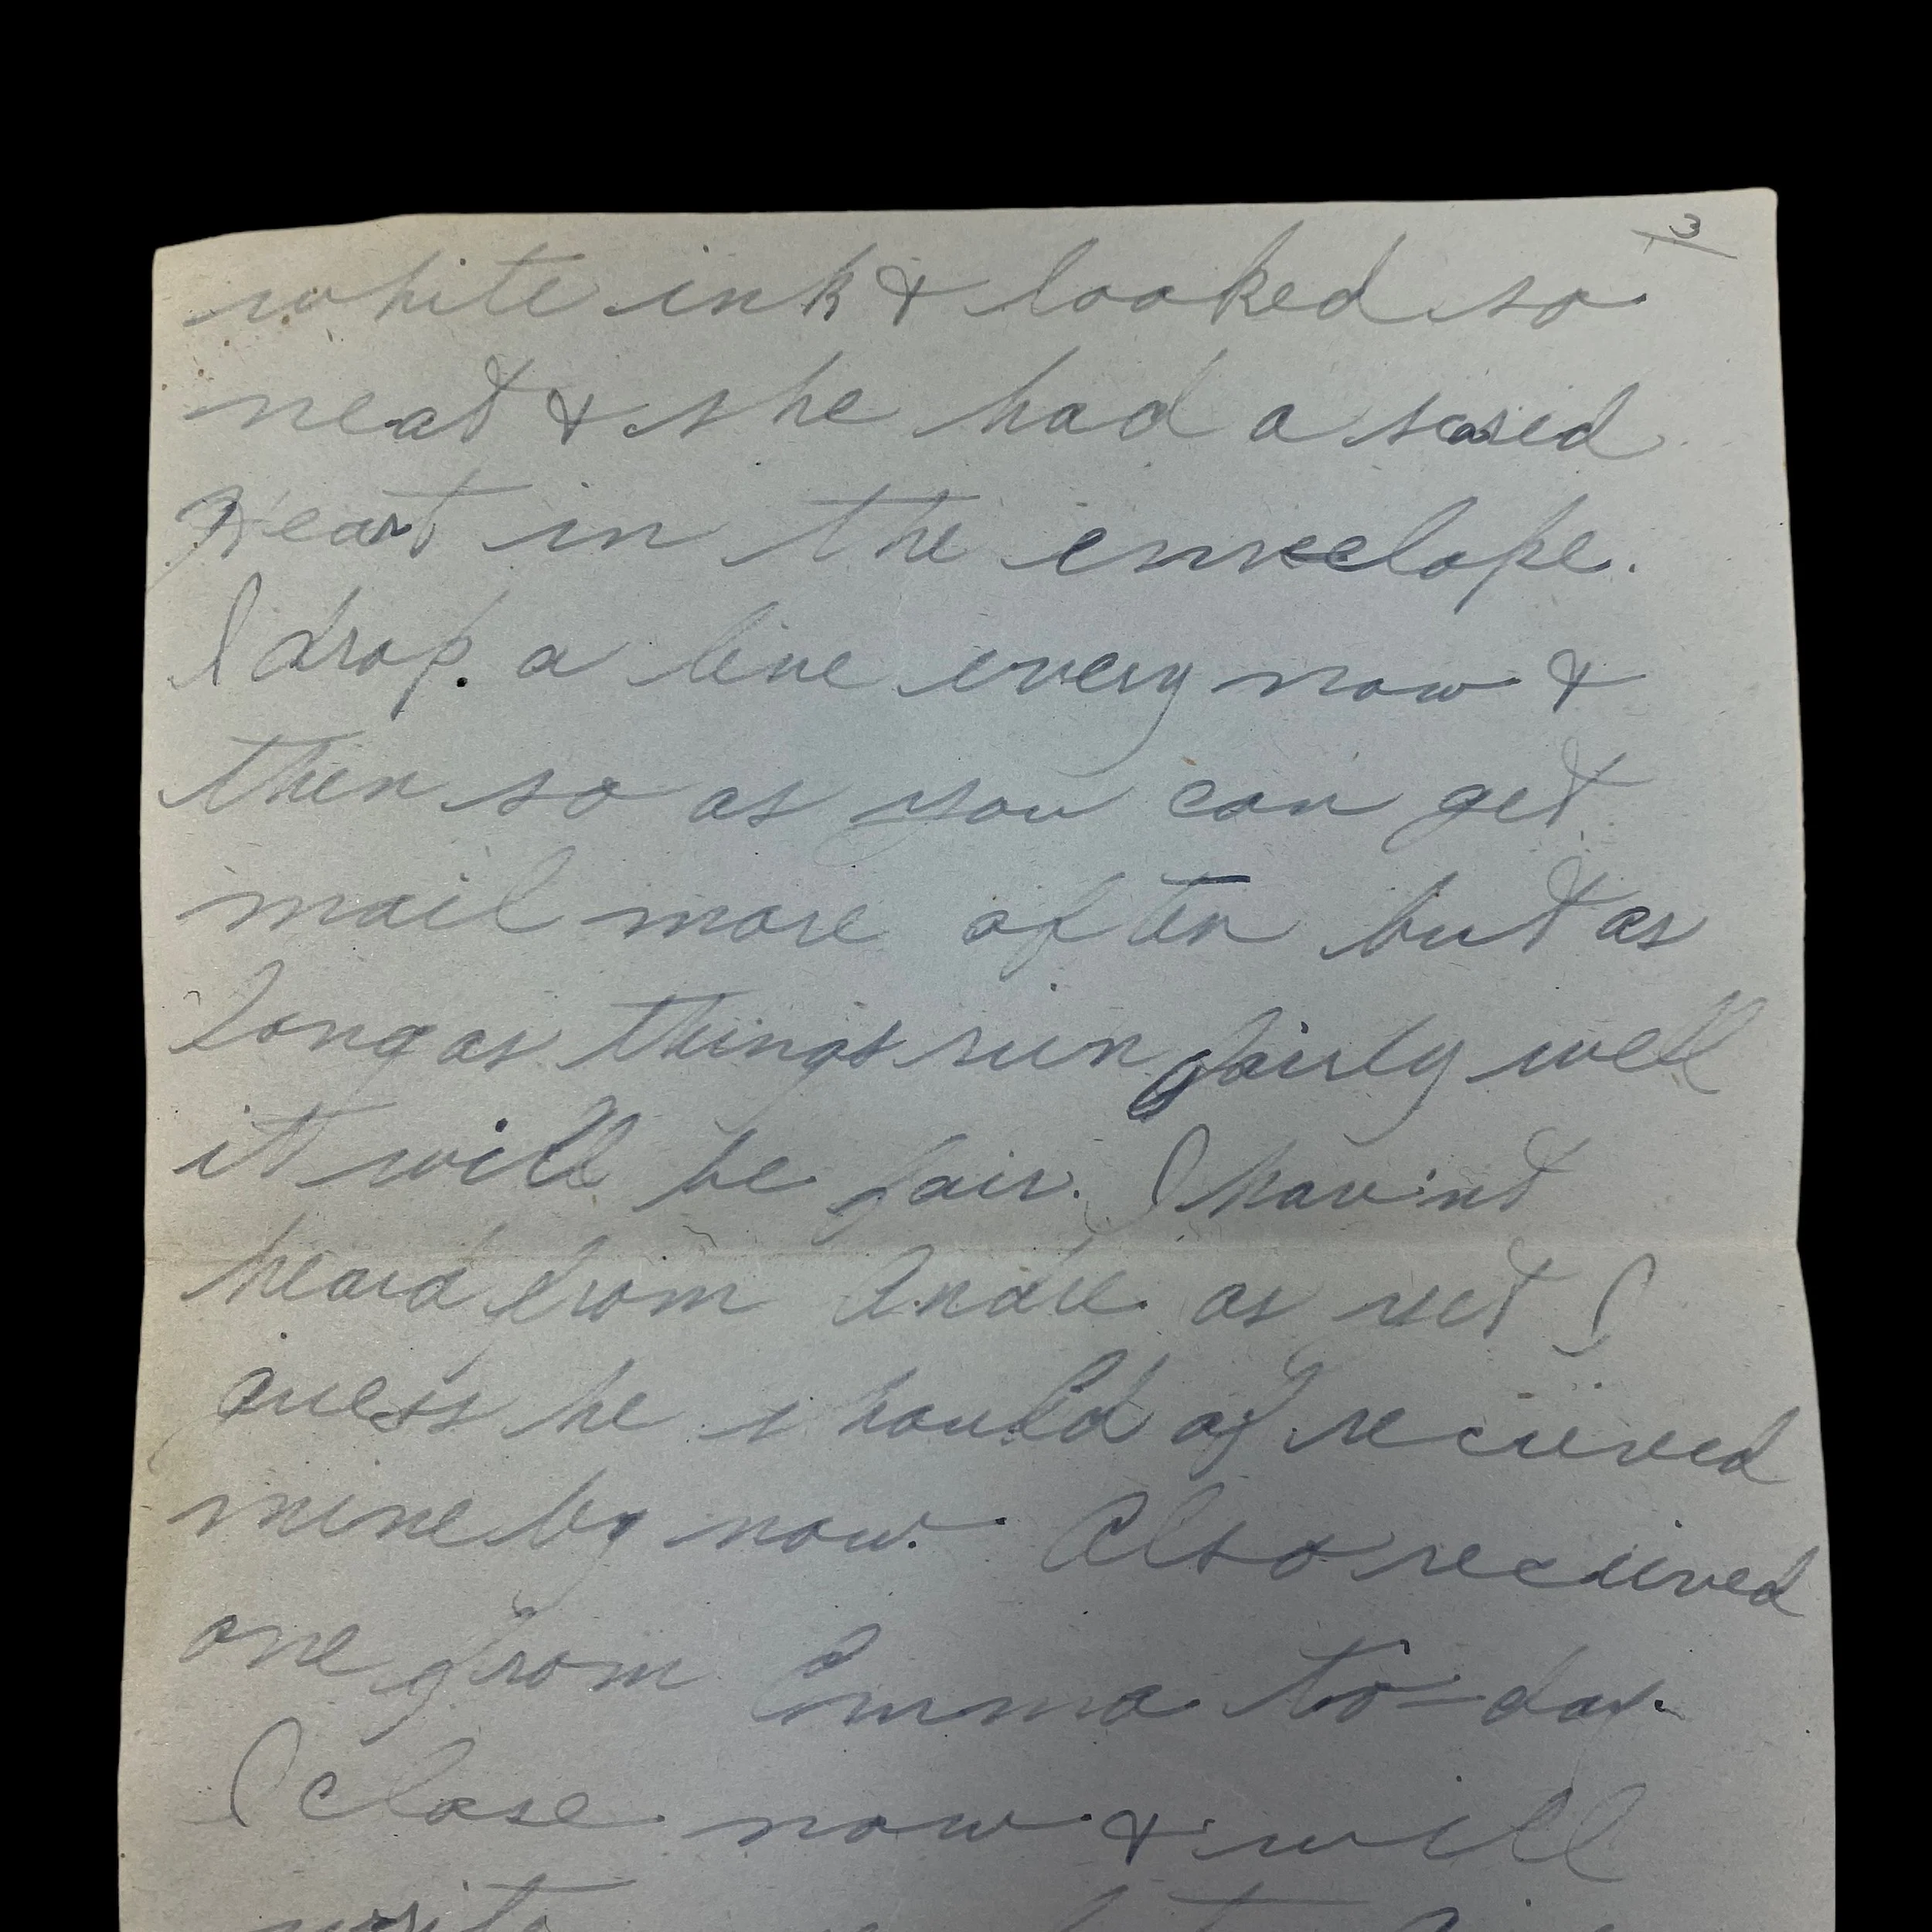 3
white ink & looked so
neat & she had a scared
Heart in the envelope.
I drop a line every now &
then so as you can get
mail more often but as
long as things run fairly well
it will be fair. I hav'nt
heard from Andre as yet I
guess he should of recieved
mine by now. Also recieved
one from Emma to-day.
I close now & will
write